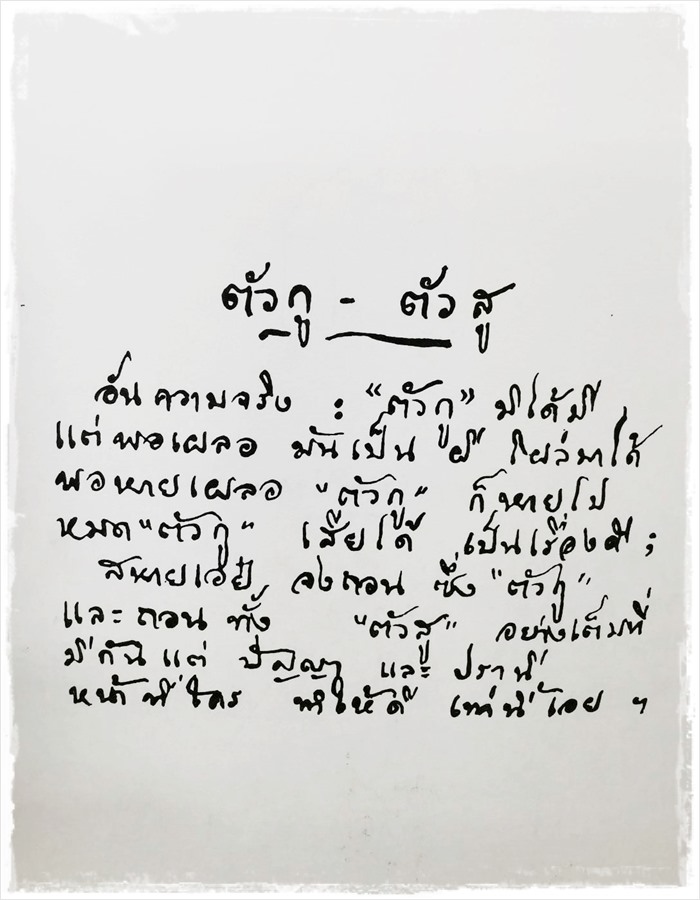 ตัวกู - ตัวสู
อันความจริง : "ตัวกู" มิได้มี
แต่พอเผลอ มันเป็น ผี โผล่มาได้
พอหายเผลอ "ตัวกู" ก็หายไป
หมด"ตัวกู" เสียได้ เป็นเรื่องดี ;
สหายเอ๋ย จงถอน ซึ่ง "ตัวกู"
และถอน ทั้ง "ตัวสู" อย่างเต็มที่
มีกันแต่ ปัญญา และ ปรานี
หน้าที่ใคร ทำให้ดี เท่านี้เอย ฯ